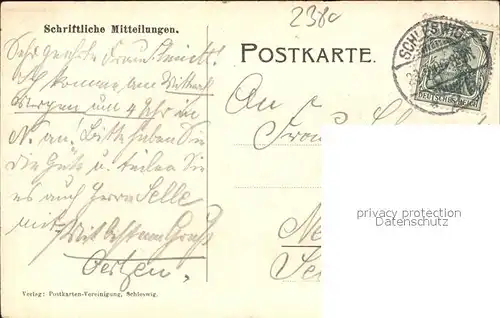 2380
Schriftliche Mitteilungen.
POSTKARTE.
SCHLESWIG
DEUTSCHES REICH
Sehr geehrte Frau
Ich komme am Mittwoch
Morgen um 4 Uhr in
N. an. Bitte haben Sie
die Güte u. teilen Sie
es auch Herrn Selle
mit.
Mit bestem Gruß
Oertzen.
An
Frau
Ne
privacy protection
Datenschutz
Verlag: Postkarten-Vereinigung, Schleswig.